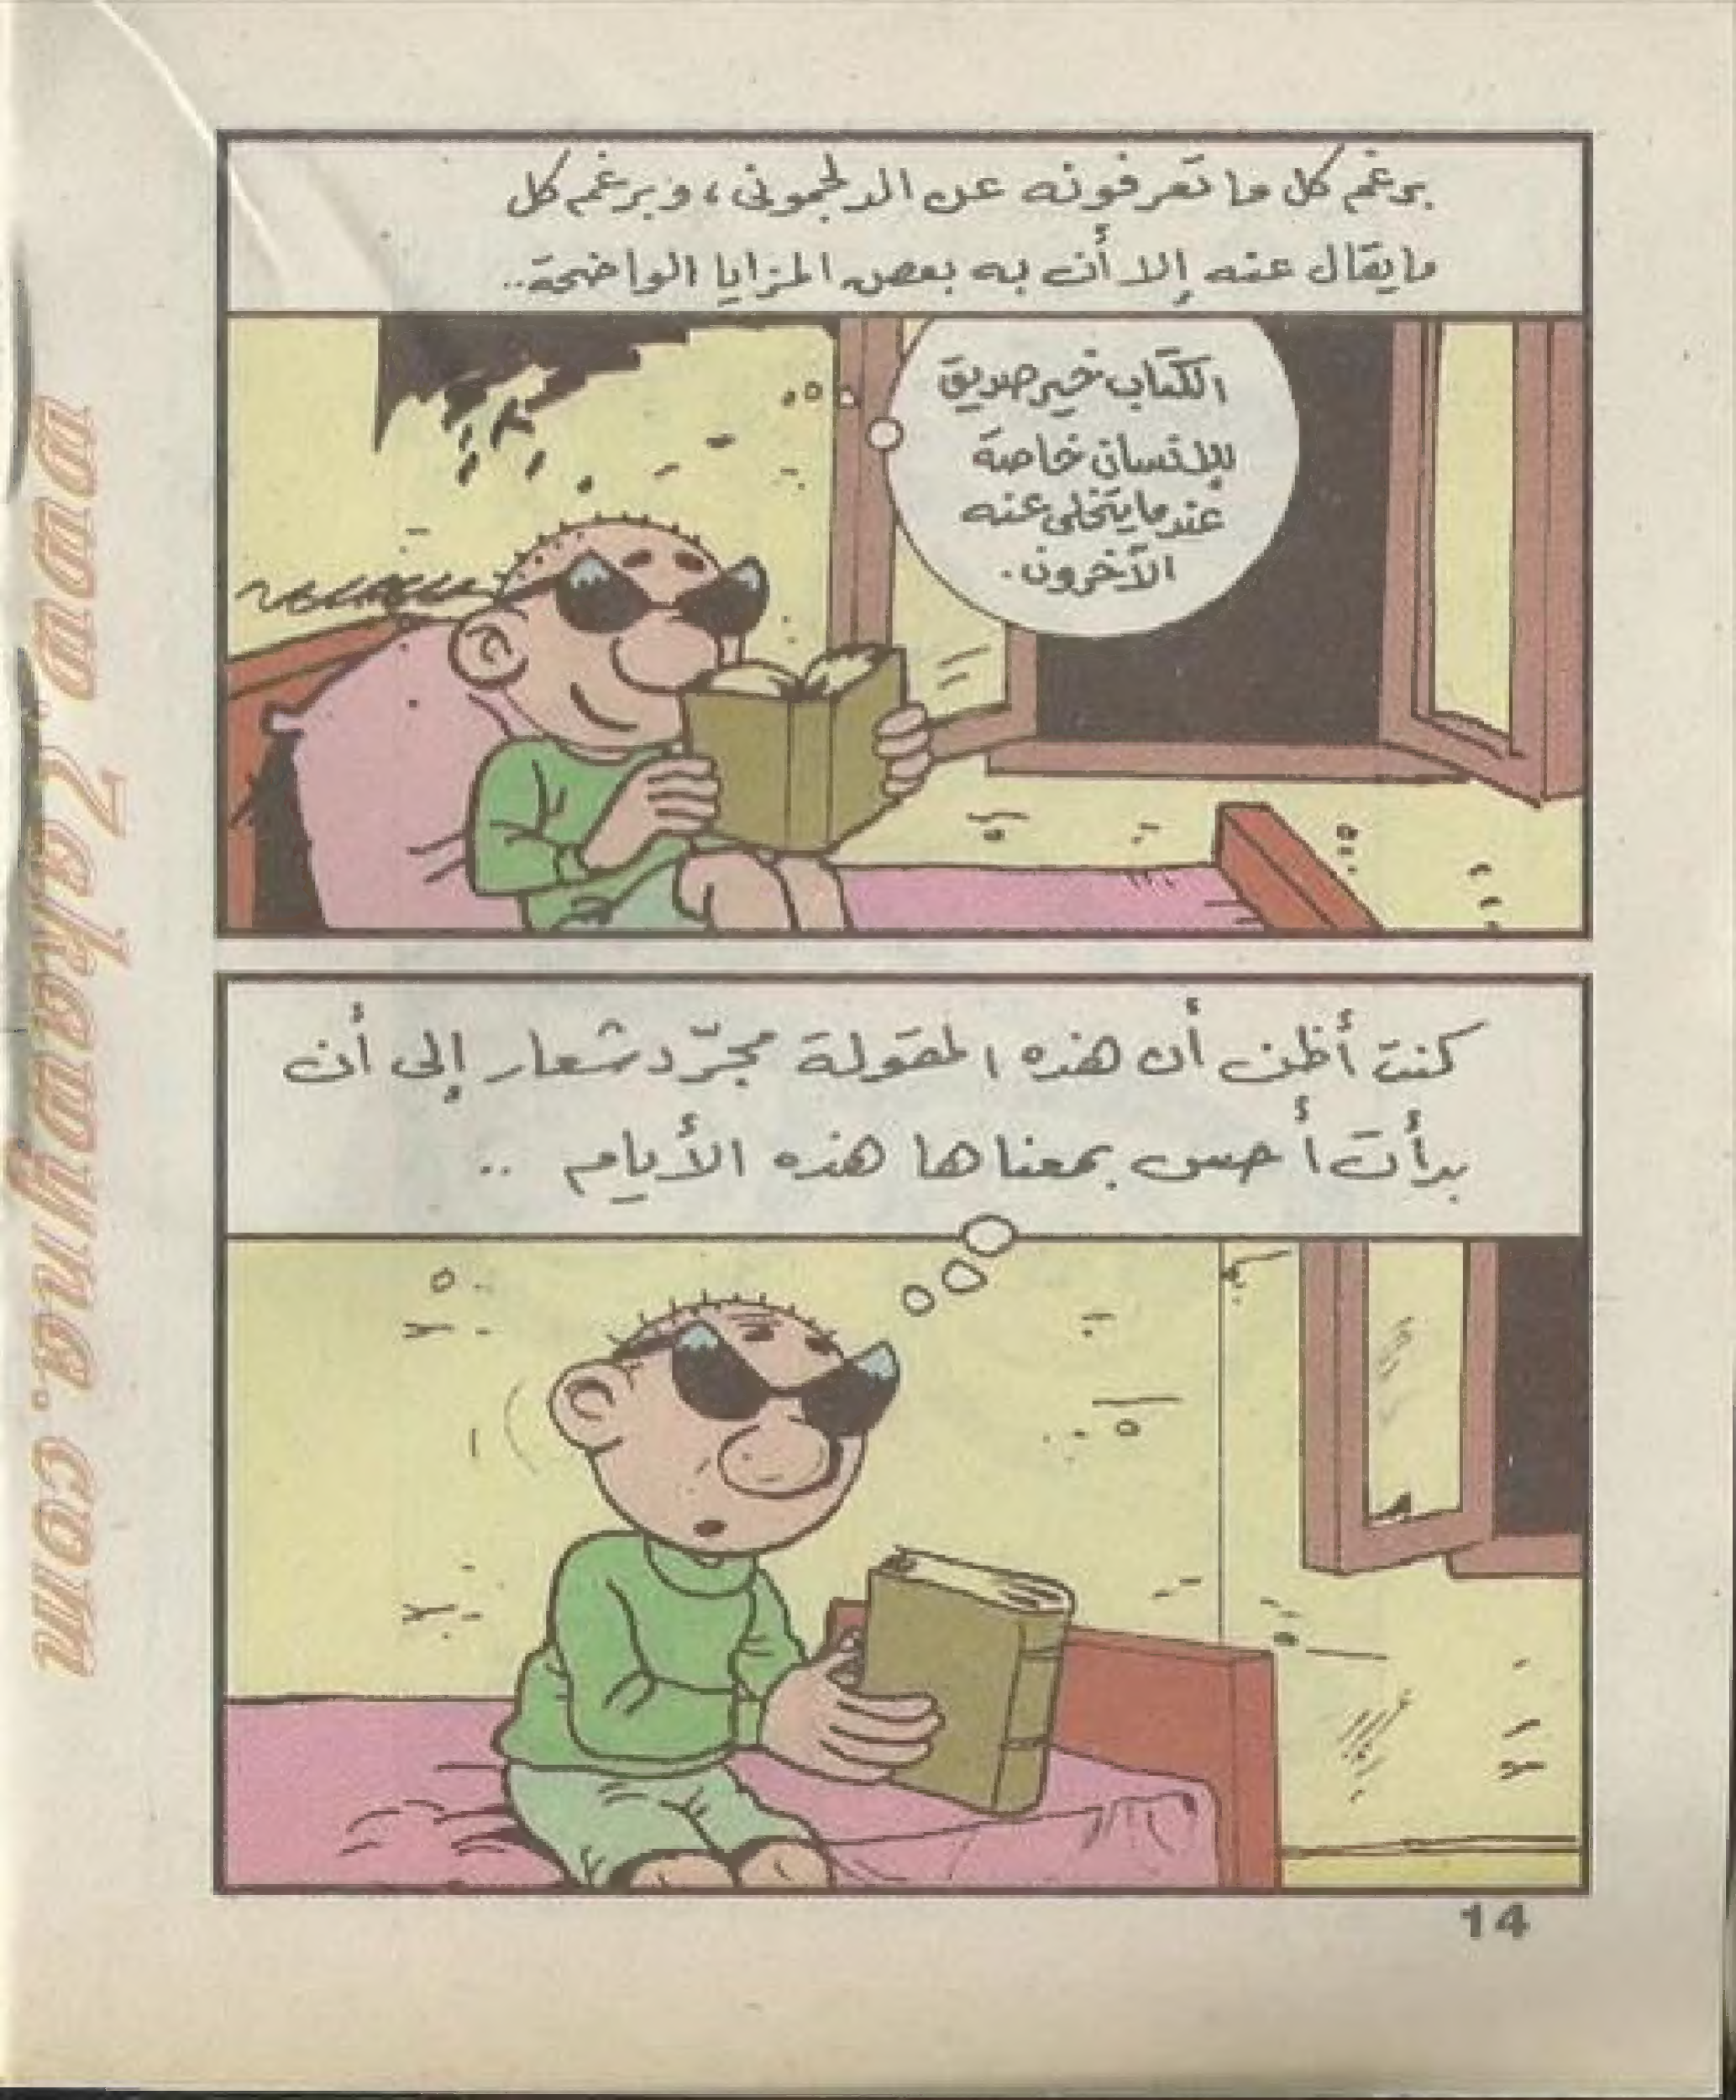 برغم كل ما تعرفونه عن الدلجمونى، وبرغم كل
ما يقال عنه إلا أن به بعض المزايا الواضحة..
الكتاب خير صديق
للإنسان خاصة
عندما يتخلى عنه
الآخرون.
كنت أظن أن هذه المقولة مجرّد شعار إلى أن
بدأت أحس بمعناها هذه الأيام ..
14